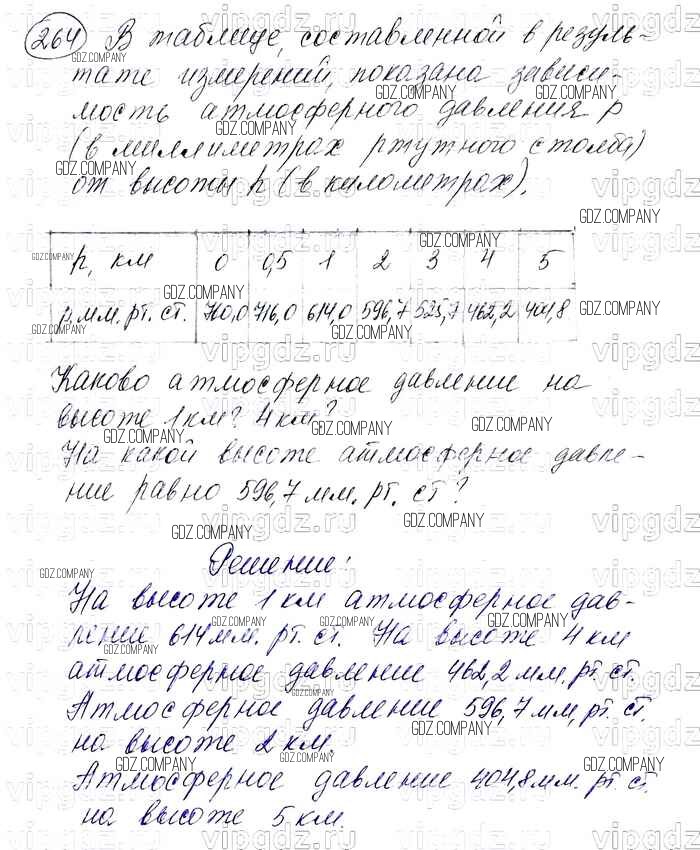 264 В таблице, составленной в резуль-
тате измерений, показана зависи-
мость атмосферного давления p
(в миллиметрах ртутного столба)
от высоты h (в километрах).
h, км 0 0,5 1 2 3 4 5
p, мм. рт. ст. 760,0 716,0 614,0 596,7 525,7 462,2 404,8
Каково атмосферное давление на
высоте 1 км? 4 км?
На какой высоте атмосферное давле-
ние равно 596,7 мм. рт. ст?
Решение:
На высоте 1 км атмосферное дав-
ление 614 мм. рт. ст. На высоте 4 км
атмосферное давление 462,2 мм. рт. ст.
Атмосферное давление 596,7 мм, рт. ст.
на высоте 2 км.
Атмосферное давление 404,8 мм. рт. ст.
на высоте 5 км.
GDZ.COMPANY
vipgdz.ru